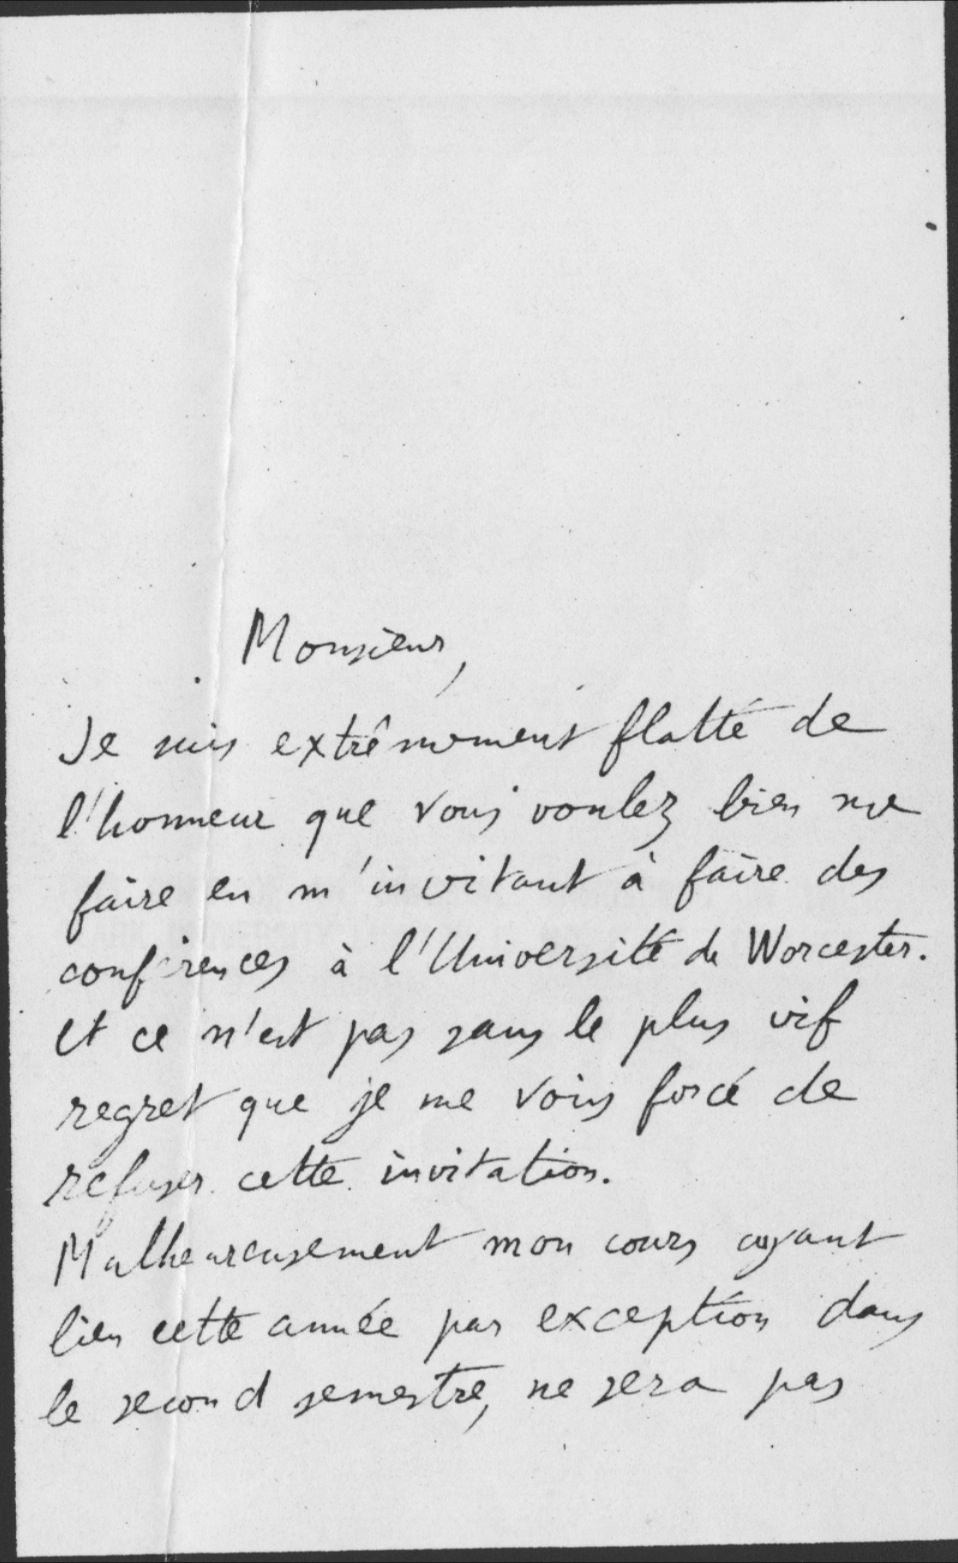 Monsieur,
Je suis extrêmement flatté de
l'honneur que vous voulez bien me
faire en m'invitant à faire des
conférences à l'Université de Worcester.
Et ce n'est pas sans le plus vif
regret que je me vois forcé de
refuser cette invitation.
Malheureusement mon cours ayant
lieu cette année par exception dans
le second semestre, ne sera pas